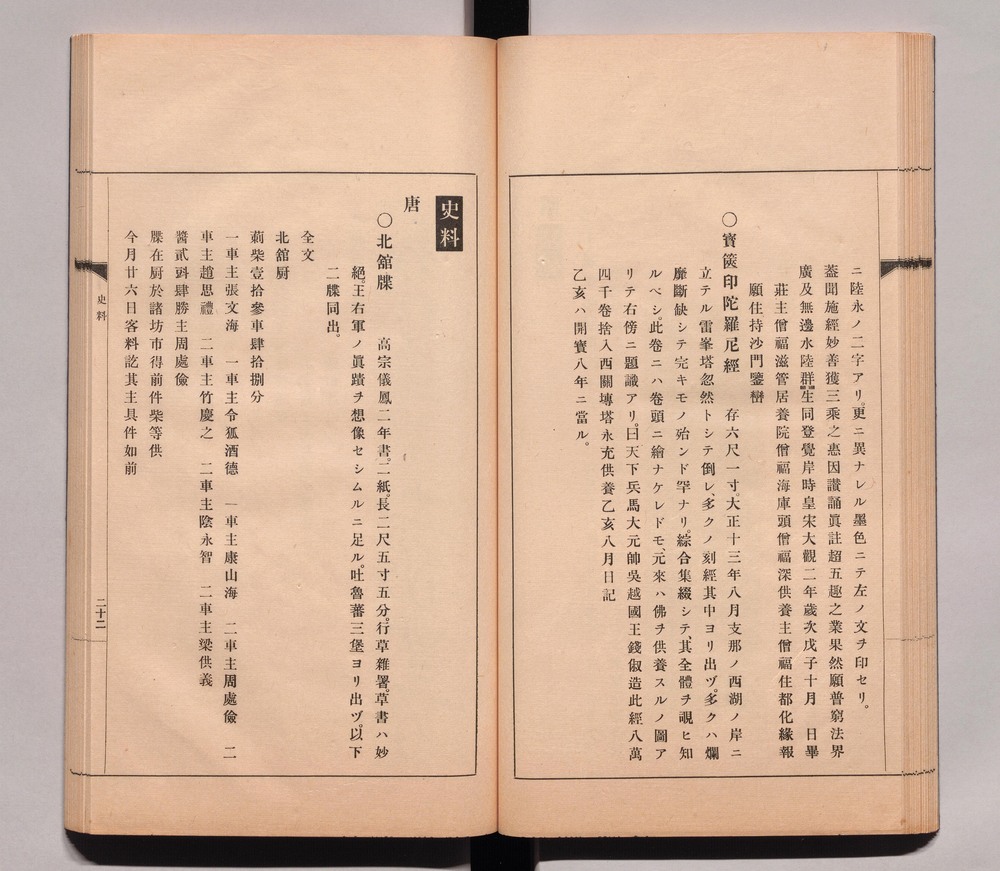 ニ陸永ノ二字アリ。更ニ異ナレル墨色ニテ左ノ文ヲ印セリ。
蓋聞施經妙善獲三乘之惠因讃誦眞詮超五趣之業果然願普窮法界
廣及無邊水陸群生同登覺岸時皇宋大觀二年歲次戊子十月　日畢
莊主僧福滋管居養院僧福海庫頭僧福深供養主僧福住都化緣報
願住持沙門鑒巒
○寶篋印陀羅尼經　存六尺一寸。大正十三年八月支那ノ西湖ノ岸ニ
立テル雷峯塔忽然トシテ倒レ、多クノ刻經其中ヨリ出ヅ。多クハ爛
靡斷缺シテ完キモノ殆ンド罕ナリ。綜合集綴シテ、其全體ヲ覗ヒ知
ルベシ。此卷ニハ卷頭ニ繪ナケレドモ、元來ハ佛ヲ供養スルノ圖ア
リテ右傍ニ題識アリ。曰天下兵馬大元帥吳越國王錢俶造此經八萬
四千卷捨入西關塼塔永充供養乙亥八月日記
乙亥ハ開寶八年ニ當ル。
史料
唐
○北舘牒　高宗儀鳳二年書。二紙。長二尺五寸五分。行草雜署。草書ハ妙
絕。王右軍ノ眞蹟ヲ想像セシムルニ足ル。吐魯蕃三堡ヨリ出ヅ。以下
二牒同出。
全文
北舘厨
莿柴壹拾參車肆拾捌分
一車主張文海　一車主令狐酒德　一車主康山海　二車主周處儉　二
車主趙思禮　二車主竹慶之　二車主陰永智　二車主梁供義
醬貳㪷肆勝主周處儉
牒在厨於諸坊市得前件柴等供
今月廿六日客料訖其主具件如前
史料
二十二